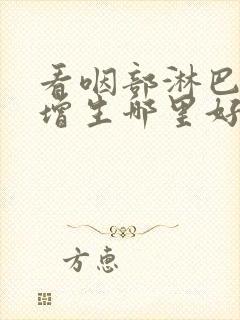 看咽部淋巴
增生哪里好
方惠